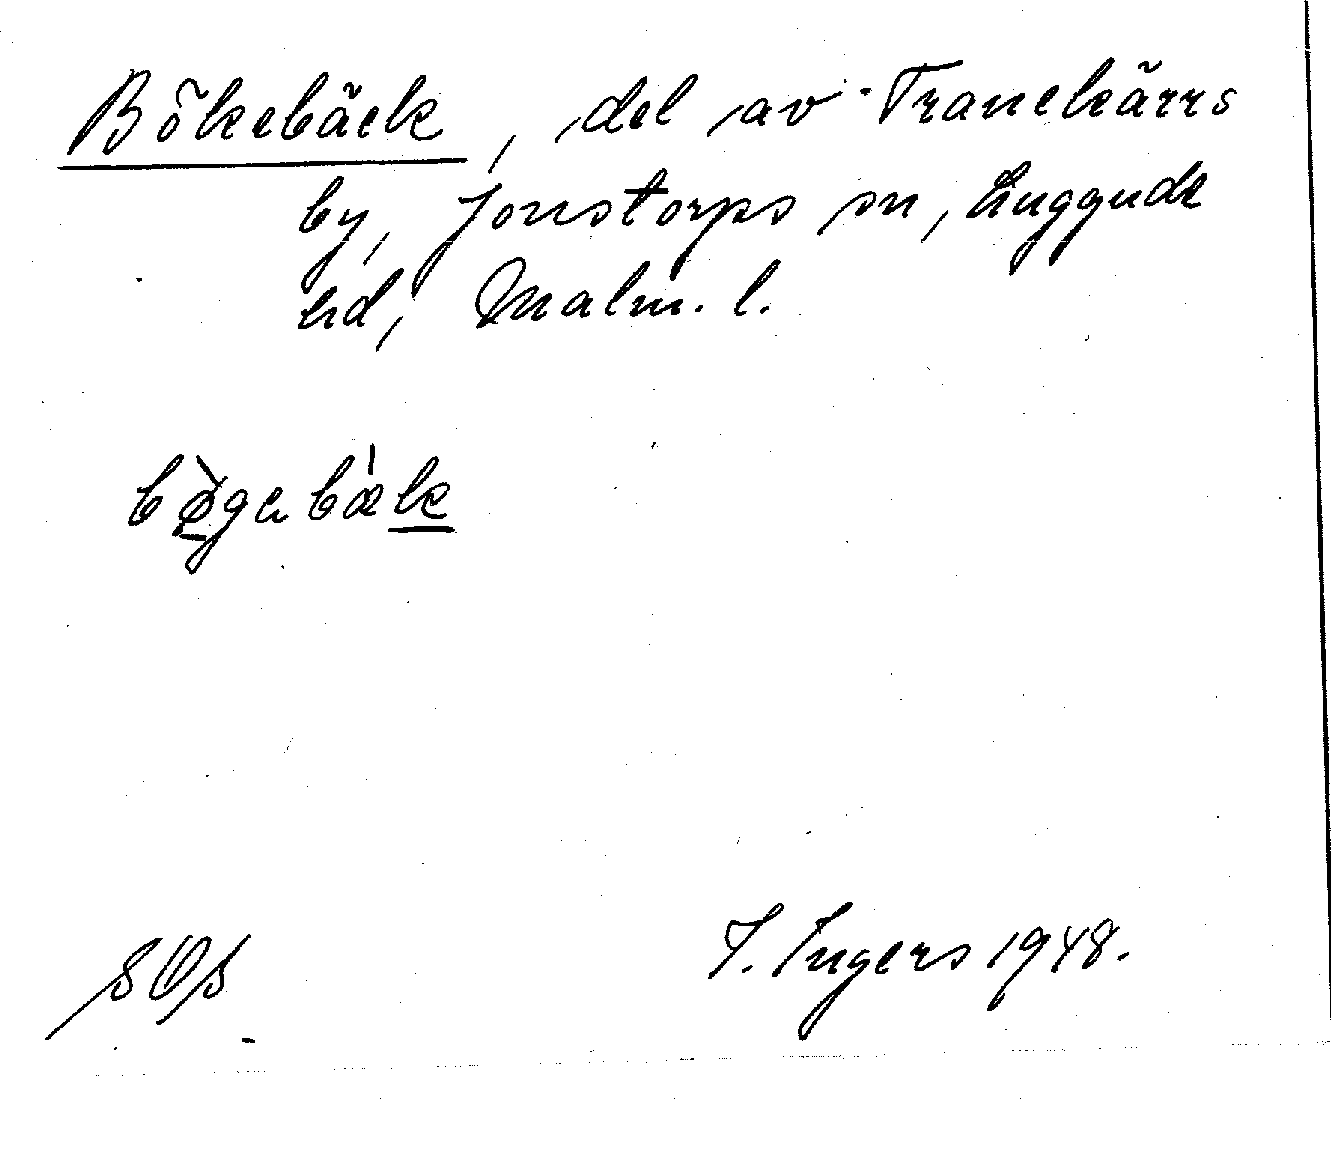 Bökebäck, del av Tranekärrs
by, Jonstorps sn, Luggude
hd, Malm. l.
bø̀gebæ̀k
SOS
I. Ingers 1948.